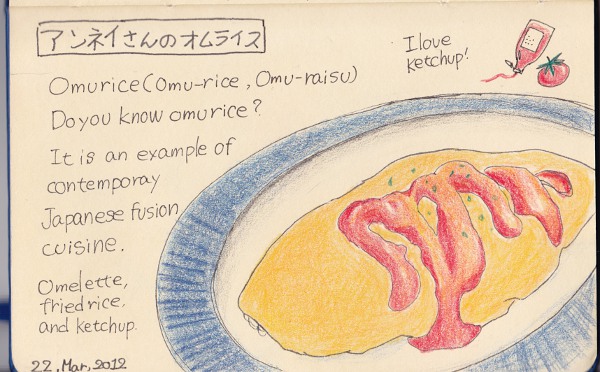 アンネイさんのオムライス
I love
ketchup!
Omurice(Omu-rice, Omu-raisu)
Do you know omurice?
It is an example of
contemporay
Japanese fusion
cuisine.
Omelette,
fried rice.
and ketchup.
22, Mar, 2012